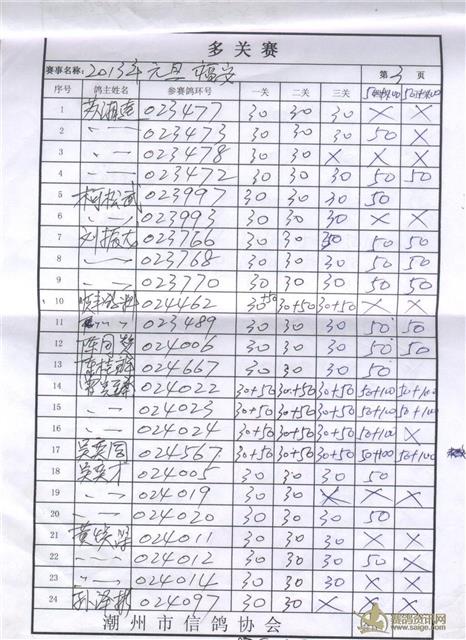 多关赛
赛事名称: 2013年元旦福安 第 3 页
序号 鸽主姓名 参赛鸽环号 一关 二关 三关 50+100 50+100
1 023477 30 30 30 × ×
2 〃 023473 30 30 30 50 ×
3 〃 023478 30 30 × × ×
4 〃 023472 30 30 30 50 50
5 柯松武 023997 30 30 30 50
6 〃 023993 30 30 30 × ×
7 刘振大 023766 30 30 30 50 50
8 〃 023768 30 30 30 50 50
9 〃 023770 30 30 30 50 50
10 024462 30+50 30+50 30+50 × ×
11 〃 023489 30 30 30 50 50
12 024006 30 30 30 50 50
13 024667 30 30 30 50
14 024022 30+50 30+50 30+50 50+100 50+100
15 〃 024023 30+50 30+50 30+50 50+100 ×
16 〃 024024 30+50 30+50 30+50 50+100 ×
17 024567 30+50 30+50 30+50 50+100 50+100
18 024005 30 30 30 50
19 〃 024019 30 30 × × ×
20 〃 024020 30 30 30 50
21 024011 30 30 30 × ×
22 〃 024012 30 30 30 50 ×
23 〃 024014 30 30 30 × ×
24 孙泽彬 024097 30 30 × × ×
潮州市信鸽协会
赛鸽资讯网
www.saige.com